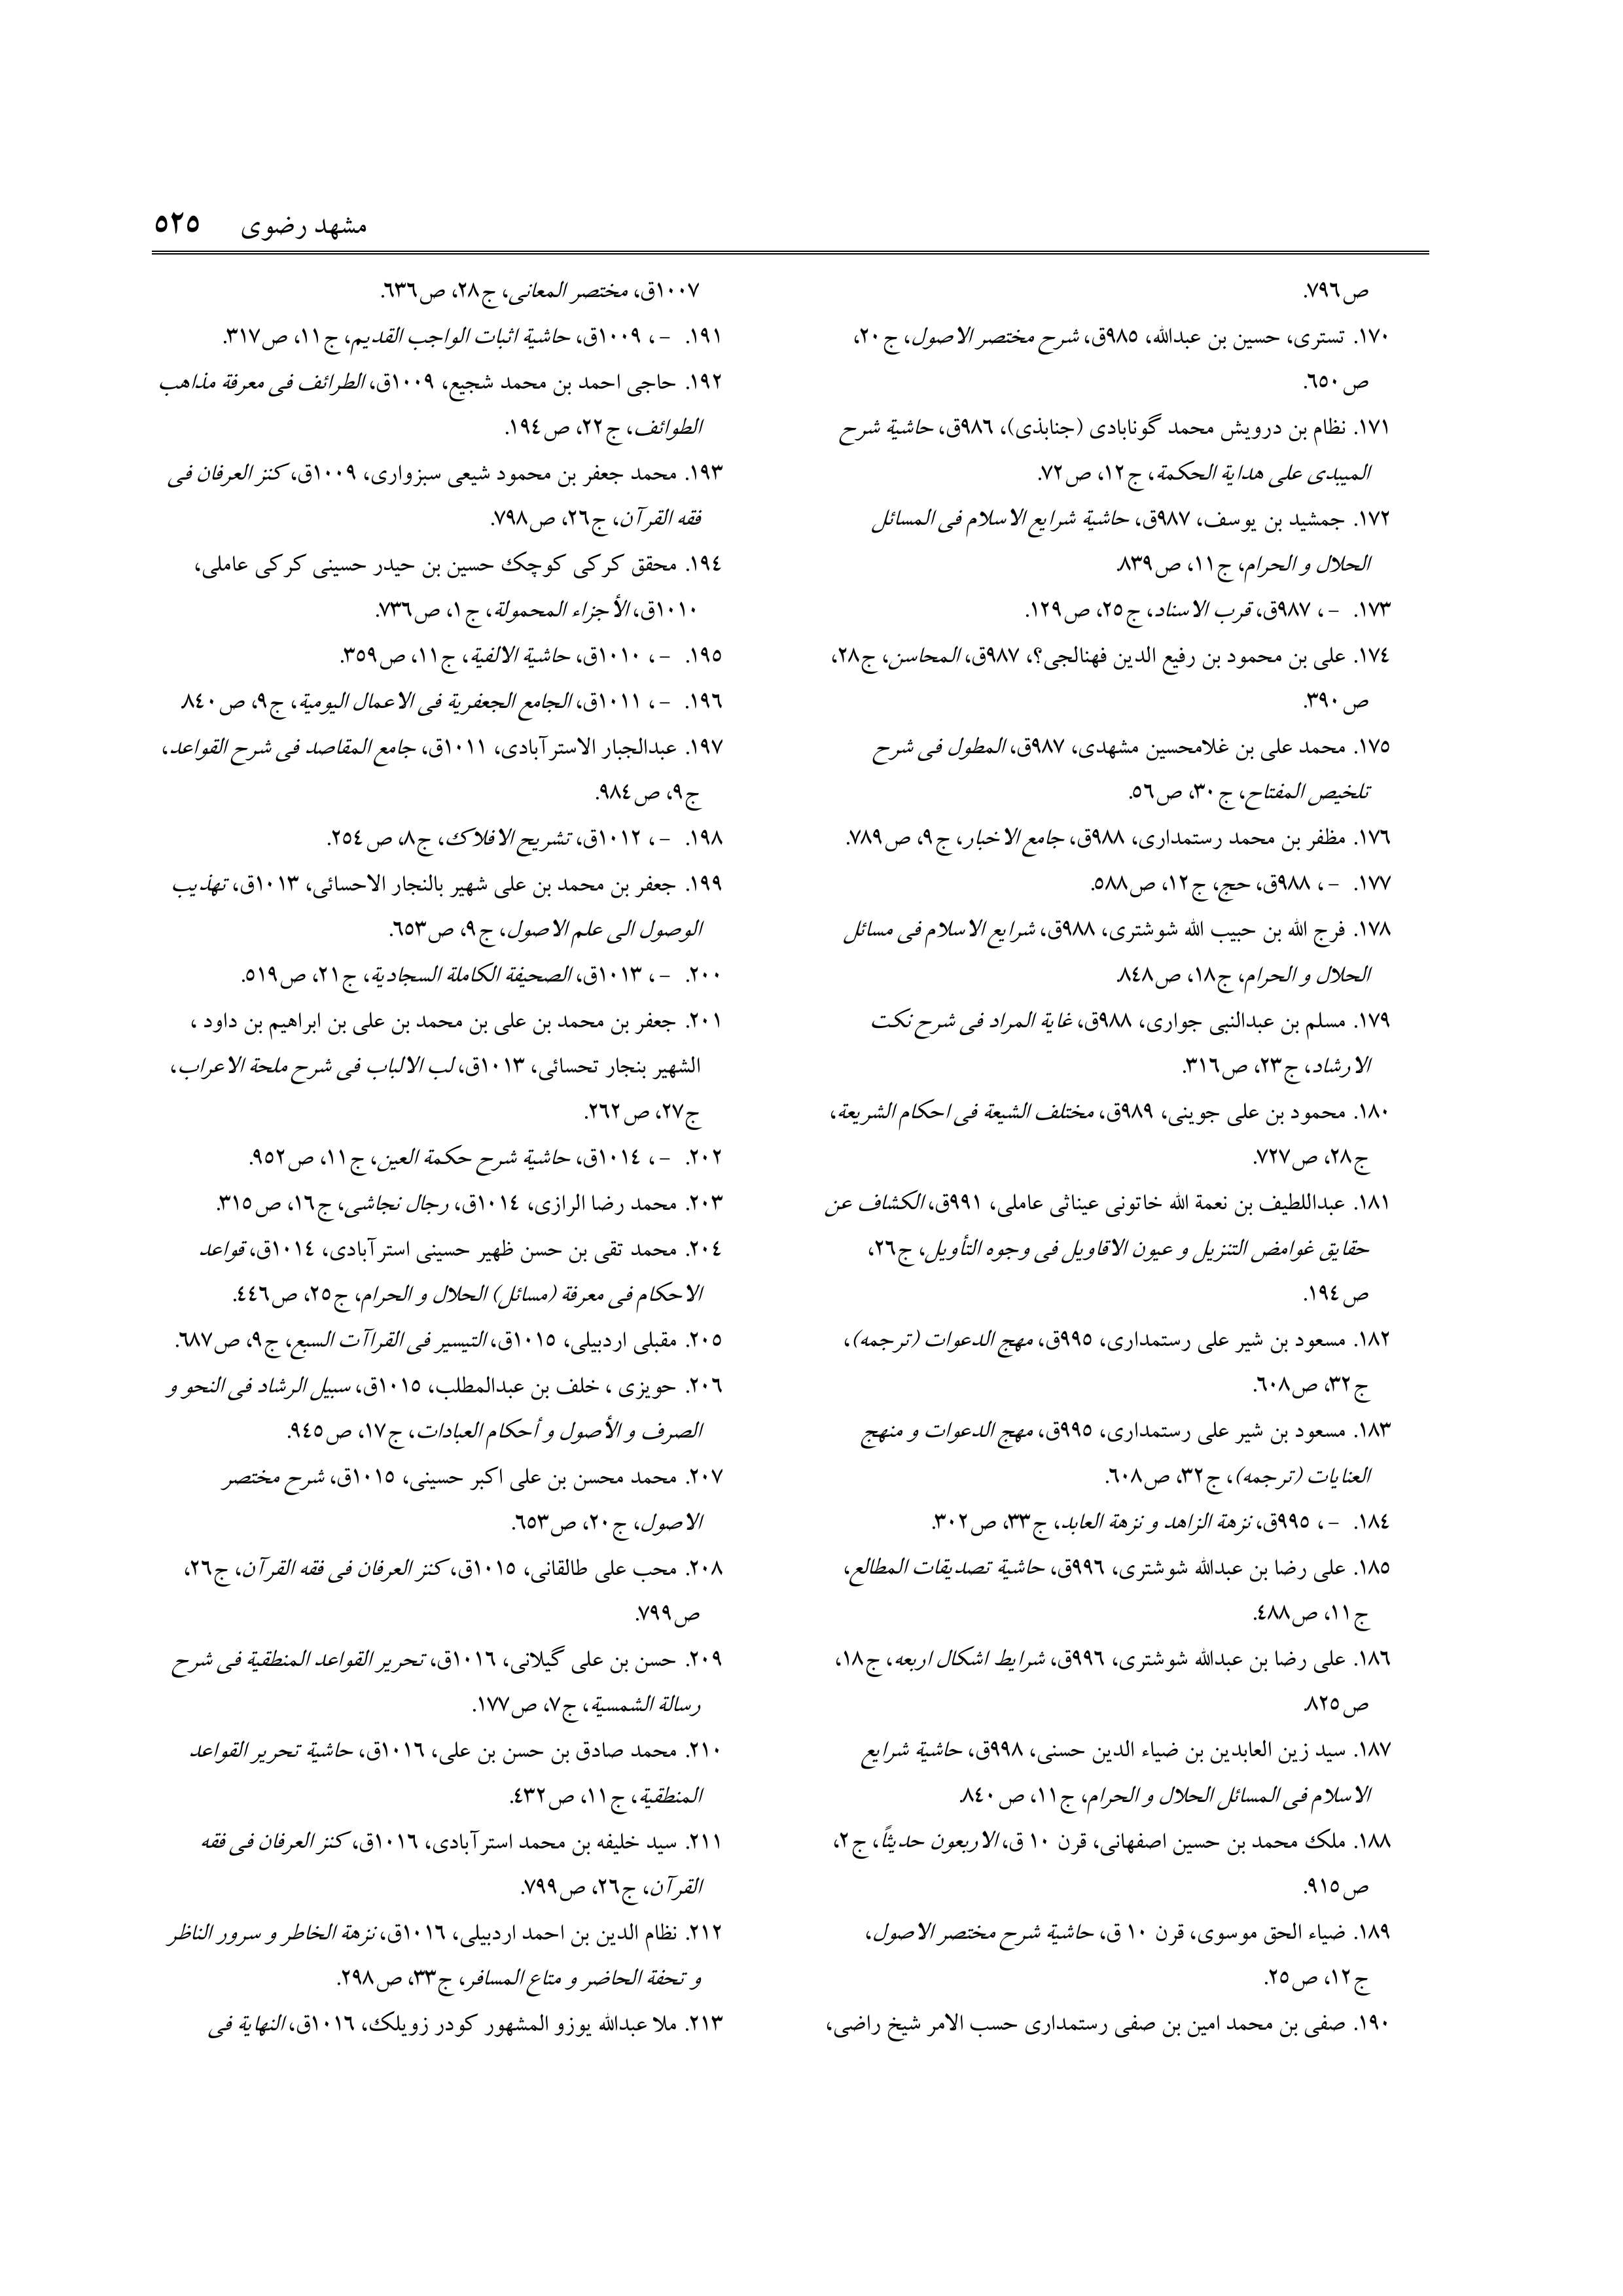 مشهد رضوی ٥٢٥
ص٧٩٦.
١٧٠. تستری، حسین بن عبدالله، ٩٨٥ق، شرح مختصر الاصول، ج٢٠،
ص٦٥٠.
١٧١. نظام بن درویش محمد گونابادی (جنابذی)، ٩٨٦ق، حاشیة شرح
المیبدی علی هدایة الحکمة، ج١٢، ص٧٢.
١٧٢. جمشید بن یوسف، ٩٨٧ق، حاشیة شرایع الاسلام فی المسائل
الحلال و الحرام، ج١١، ص٨٣٩.
١٧٣. -، ٩٨٧ق، قرب الاسناد، ج٢٥، ص١٢٩.
١٧٤. علی بن محمود بن رفیع الدین فهنالجی؟، ٩٨٧ق، المحاسن، ج٢٨،
ص٣٩٠.
١٧٥. محمد علی بن غلامحسین مشهدی، ٩٨٧ق، المطول فی شرح
تلخیص المفتاح، ج٣٠، ص٥٦.
١٧٦. مظفر بن محمد رستمداری، ٩٨٨ق، جامع الاخبار، ج٩، ص٧٨٩.
١٧٧. -، ٩٨٨ق، حج، ج١٢، ص٥٨٨.
١٧٨. فرج الله بن حبیب الله شوشتری، ٩٨٨ق، شرایع الاسلام فی مسائل
الحلال و الحرام، ج١٨، ص٨٤٨.
١٧٩. مسلم بن عبدالنبی جواری، ٩٨٨ق، غایة المراد فی شرح نکت
الارشاد، ج٢٣، ص٣١٦.
١٨٠. محمود بن علی جوینی، ٩٨٩ق، مختلف الشیعة فی احکام الشریعة،
ج٢٨، ص٧٢٧.
١٨١. عبداللطیف بن نعمة الله خاتونی عیناثی عاملی، ٩٩١ق، الکشاف عن
حقایق غوامض التنزیل و عیون الاقاویل فی وجوه التأویل، ج٢٦،
ص١٩٤.
١٨٢. مسعود بن شیر علی رستمداری، ٩٩٥ق، مهج الدعوات (ترجمه)،
ج٣٢، ص٦٠٨.
١٨٣. مسعود بن شیر علی رستمداری، ٩٩٥ق، مهج الدعوات و منهج
العنایات (ترجمه)، ج٣٢، ص٦٠٨.
١٨٤. -، ٩٩٥ق، نزهة الزاهد و نزهة العابد، ج٣٣، ص٣٠٢.
١٨٥. علی رضا بن عبدالله شوشتری، ٩٩٦ق، حاشیة تصدیقات المطالع،
ج١١، ص٤٨٨.
١٨٦. علی رضا بن عبدالله شوشتری، ٩٩٦ق، شرایط اشکال اربعه، ج١٨،
ص٨٢٥.
١٨٧. سید زین العابدین بن ضیاء الدین حسنی، ٩٩٨ق، حاشیة شرایع
الاسلام فی المسائل الحلال و الحرام، ج١١، ص٨٤٠.
١٨٨. ملک محمد بن حسین اصفهانی، قرن ١٠ ق، الاربعون حدیثاً، ج٢،
ص٩١٥.
١٨٩. ضیاء الحق موسوی، قرن ١٠ ق، حاشیة شرح مختصر الاصول،
ج١٢، ص٢٥.
١٩٠. صفی بن محمد امین بن صفی رستمداری حسب الامر شیخ راضی،
١٠٠٧ق، مختصر المعانی، ج٢٨، ص٦٣٦.
١٩١. -، ١٠٠٩ق، حاشیة اثبات الواجب القدیم، ج١١، ص٣١٧.
١٩٢. حاجی احمد بن محمد شجیع، ١٠٠٩ق، الطرائف فی معرفة مذاهب
الطوائف، ج٢٢، ص١٩٤.
١٩٣. محمد جعفر بن محمود شیعی سبزواری، ١٠٠٩ق، کنز العرفان فی
فقه القرآن، ج٢٦، ص٧٩٨.
١٩٤. محقق کرکی کوچک حسین بن حیدر حسینی کرکی عاملی،
١٠١٠ق، الأجزاء المحمولة، ج١، ص٧٣٦.
١٩٥. -، ١٠١٠ق، حاشیة الالفیة، ج١١، ص٣٥٩.
١٩٦. -، ١٠١١ق، الجامع الجعفریة فی الاعمال الیومیة، ج٩، ص٨٤٠.
١٩٧. عبدالجبار الاسترآبادی، ١٠١١ق، جامع المقاصد فی شرح القواعد،
ج٩، ص٩٨٤.
١٩٨. -، ١٠١٢ق، تشریح الافلاک، ج٨، ص٢٥٤.
١٩٩. جعفر بن محمد بن علی شهیر بالنجار الاحسائی، ١٠١٣ق، تهذیب
الوصول الی علم الاصول، ج٩، ص٦٥٣.
٢٠٠. -، ١٠١٣ق، الصحیفة الکاملة السجادیة، ج٢١، ص٥١٩.
٢٠١. جعفر بن محمد بن علی بن محمد بن علی بن ابراهیم بن داود ،
الشهیر بنجار تحسائی، ١٠١٣ق، لب الالباب فی شرح ملحة الاعراب،
ج٢٧، ص٢٦٢.
٢٠٢. -، ١٠١٤ق، حاشیة شرح حکمة العین، ج١١، ص٩٥٢.
٢٠٣. محمد رضا الرازی، ١٠١٤ق، رجال نجاشی، ج١٦، ص٣١٥.
٢٠٤. محمد تقی بن حسن ظهیر حسینی استرآبادی، ١٠١٤ق، قواعد
الاحکام فی معرفة (مسائل) الحلال و الحرام، ج٢٥، ص٤٤٦.
٢٠٥. مقبلی اردبیلی، ١٠١٥ق، التیسیر فی القراآت السبع، ج٩، ص٦٨٧.
٢٠٦. حویزی ، خلف بن عبدالمطلب، ١٠١٥ق، سبیل الرشاد فی النحو و
الصرف و الأصول و أحکام العبادات، ج١٧، ص٩٤٥.
٢٠٧. محمد محسن بن علی اکبر حسینی، ١٠١٥ق، شرح مختصر
الاصول، ج٢٠، ص٦٥٣.
٢٠٨. محب علی طالقانی، ١٠١٥ق، کنز العرفان فی فقه القرآن، ج٢٦،
ص٧٩٩.
٢٠٩. حسن بن علی گیلانی، ١٠١٦ق، تحریر القواعد المنطقیة فی شرح
رسالة الشمسیة، ج٧، ص١٧٧.
٢١٠. محمد صادق بن حسن بن علی، ١٠١٦ق، حاشیة تحریر القواعد
المنطقیة، ج١١، ص٤٣٢.
٢١١. سید خلیفه بن محمد استرآبادی، ١٠١٦ق، کنز العرفان فی فقه
القرآن، ج٢٦، ص٧٩٩.
٢١٢. نظام الدین بن احمد اردبیلی، ١٠١٦ق، نزهة الخاطر و سرور الناظر
و تحفة الحاضر و متاع المسافر، ج٣٣، ص٢٩٨.
٢١٣. ملا عبدالله یوزو المشهور کودر زویلک، ١٠١٦ق، النهایة فی